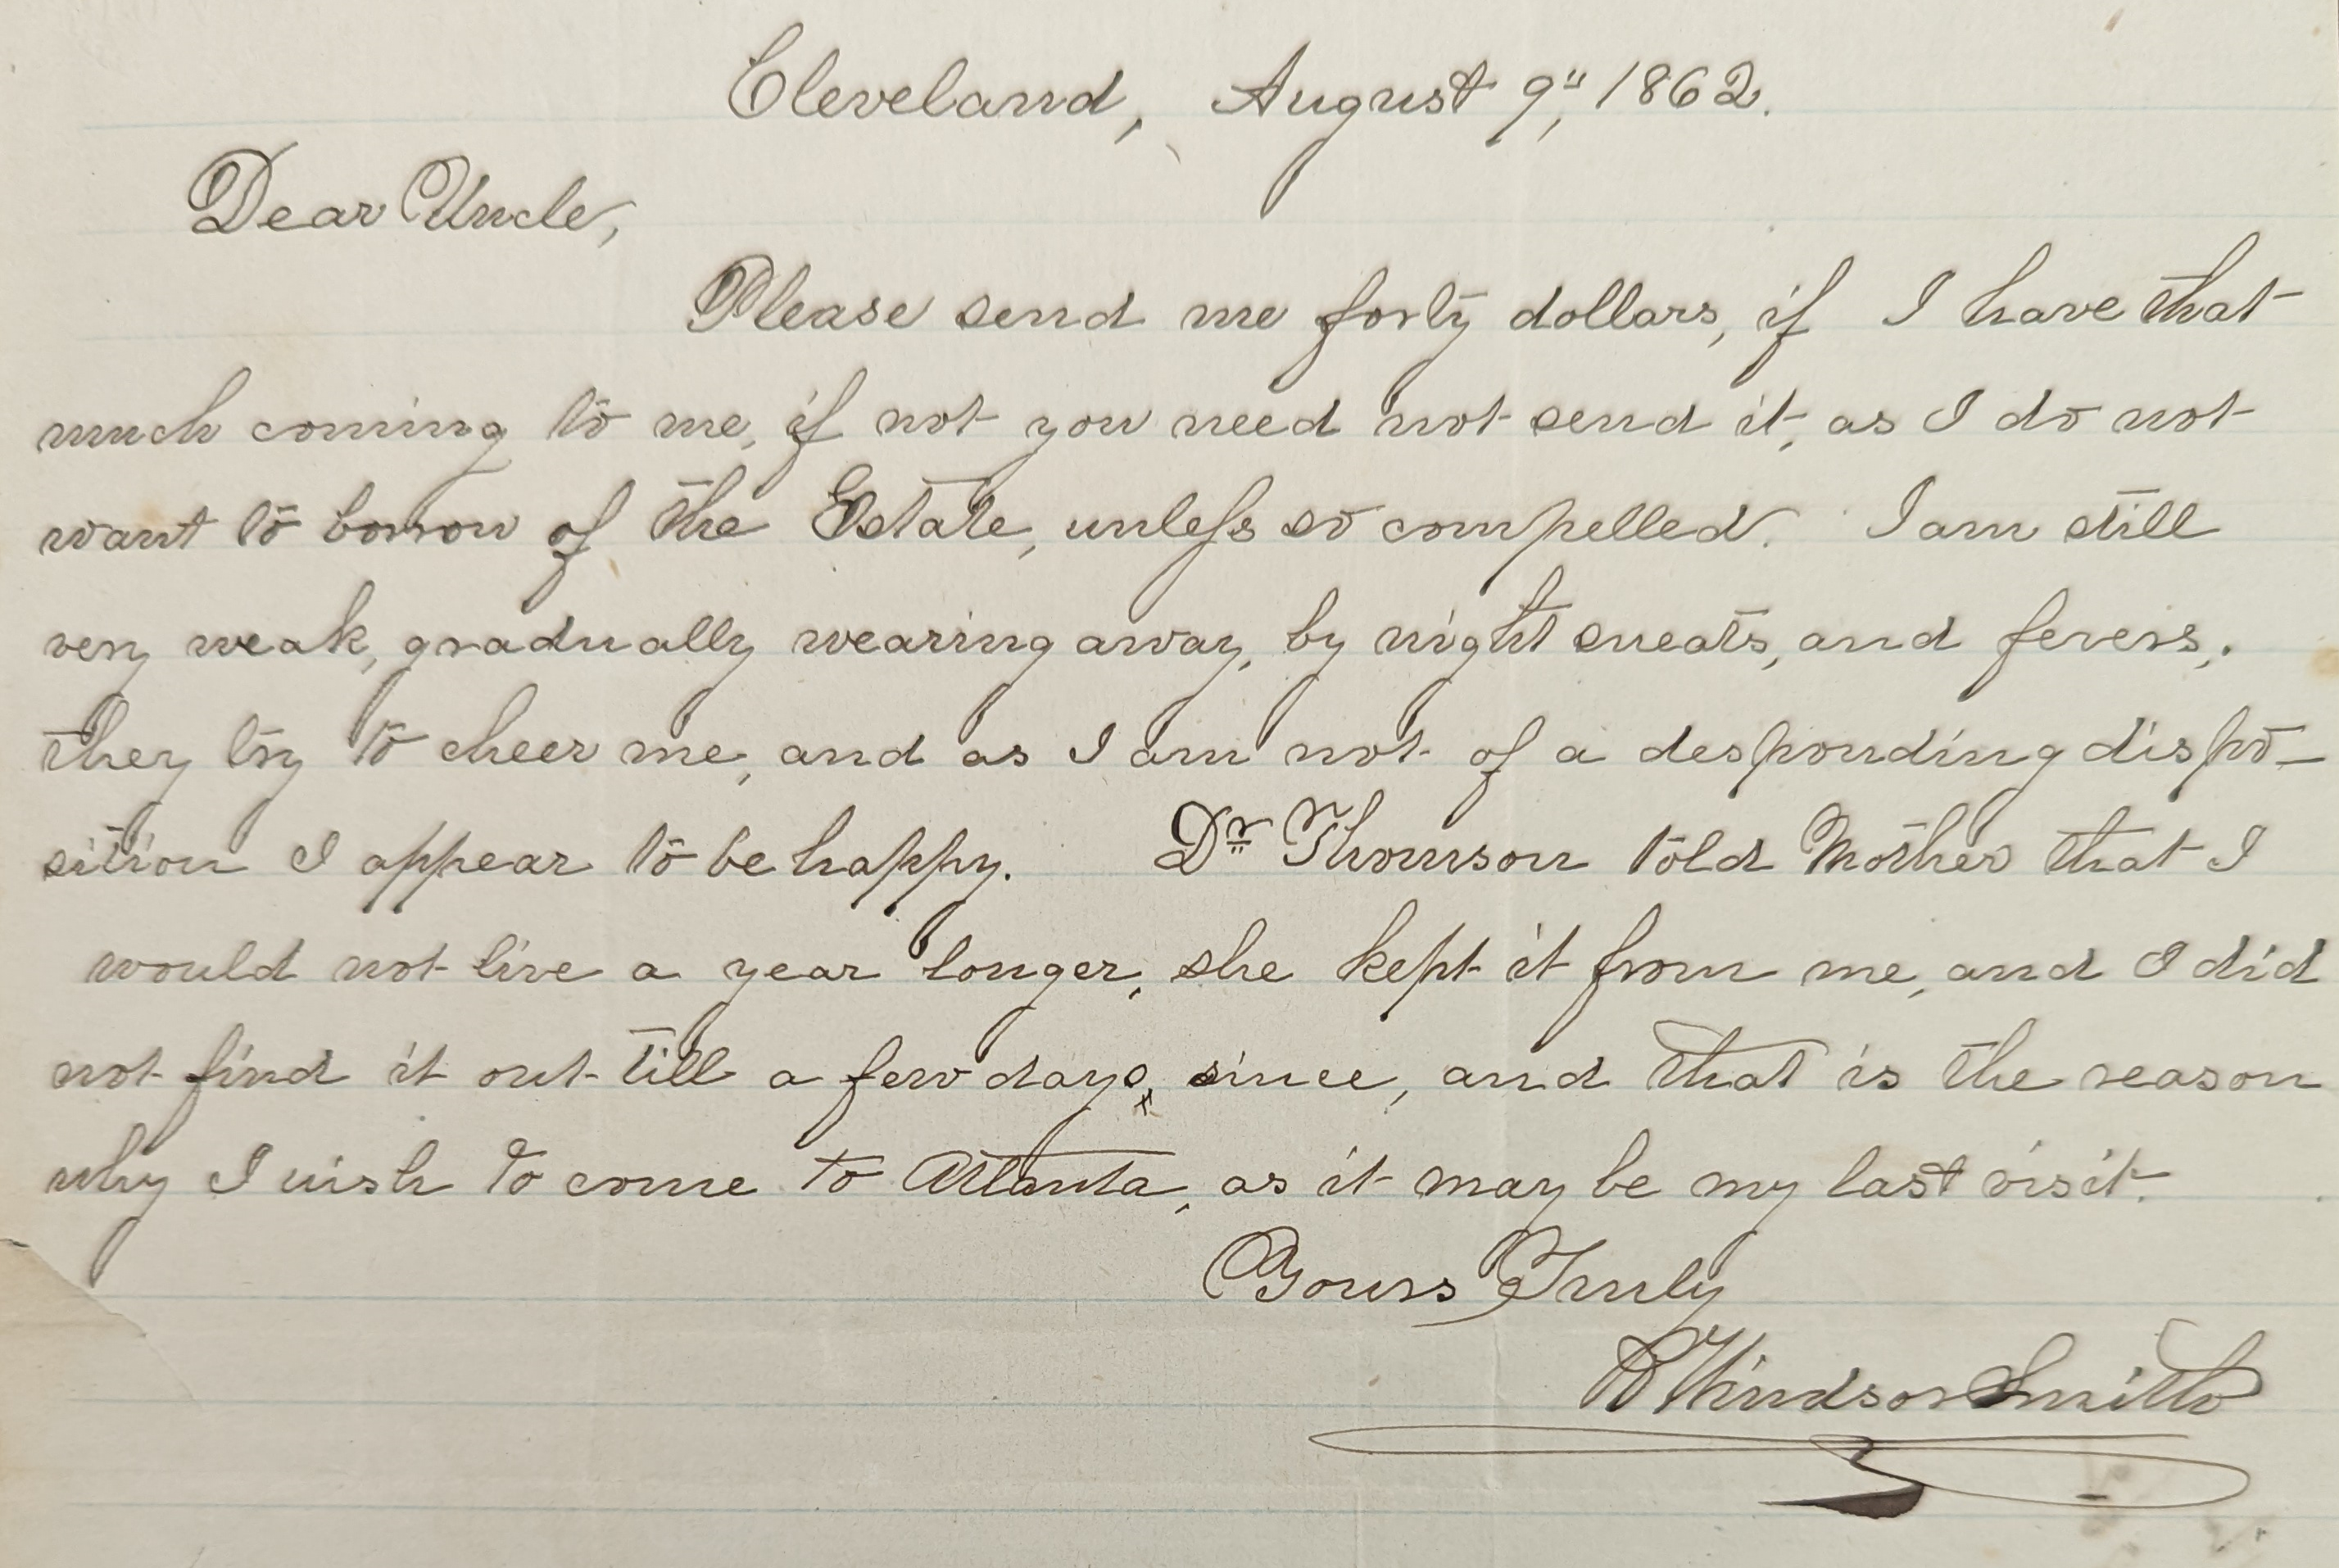 Cleveland, August 9", 1862.
Dear Uncle,
Please send me forty dollars, if I have that
much coming to me, if not you need not send it, as I do not
want to borrow of the Estate, unless so compelled. I am still
very weak, gradually wearing away, by night sweats, and fevers,.
they try to cheer me, and as I am not of a desponding dispo-
sition I appear to be happy. Dr Thomson told Mother that I
would not live a year longer, she kept it from me, and I did
not find it out till a few days, since, and that is the reason
why I wish to come to Atlanta, as it may be my last visit.
Yours Truly
Windsor Smith